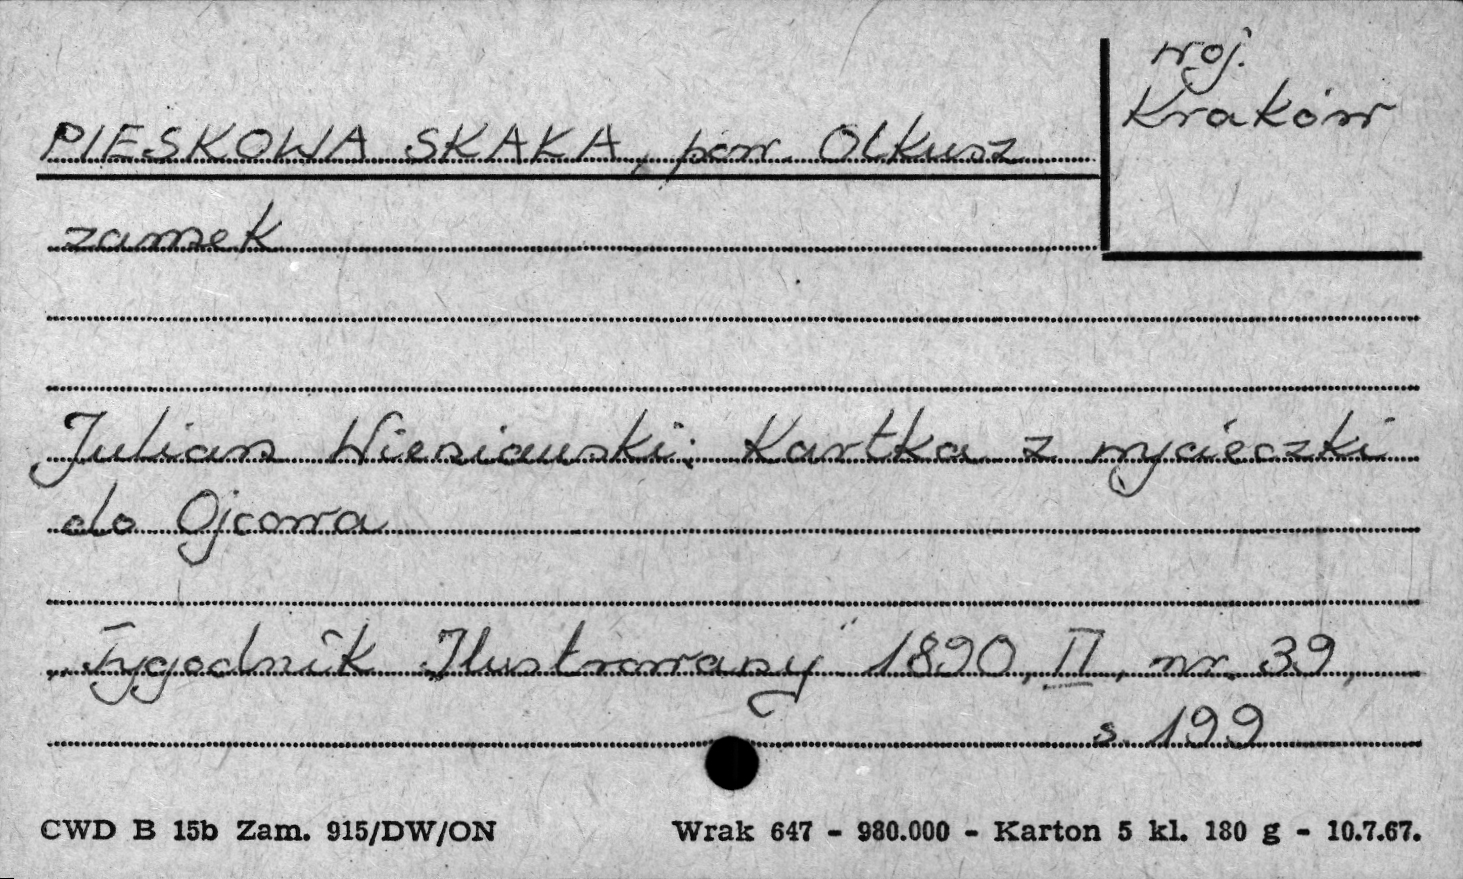 woj.
Kraków
PIESKOWA SKAŁA, pow. Olkusz
zamek
Julian Wieniawski: Kartka z wycieczki
do Ojcowa
"Tygodnik Ilustrowany" 1890, II, nr. 39,
s. 199
CWD B 15b Zam. 915/DW/ON
Wrak 647 - 980.000 - Karton 5 kl. 180 g - 10.7.67.